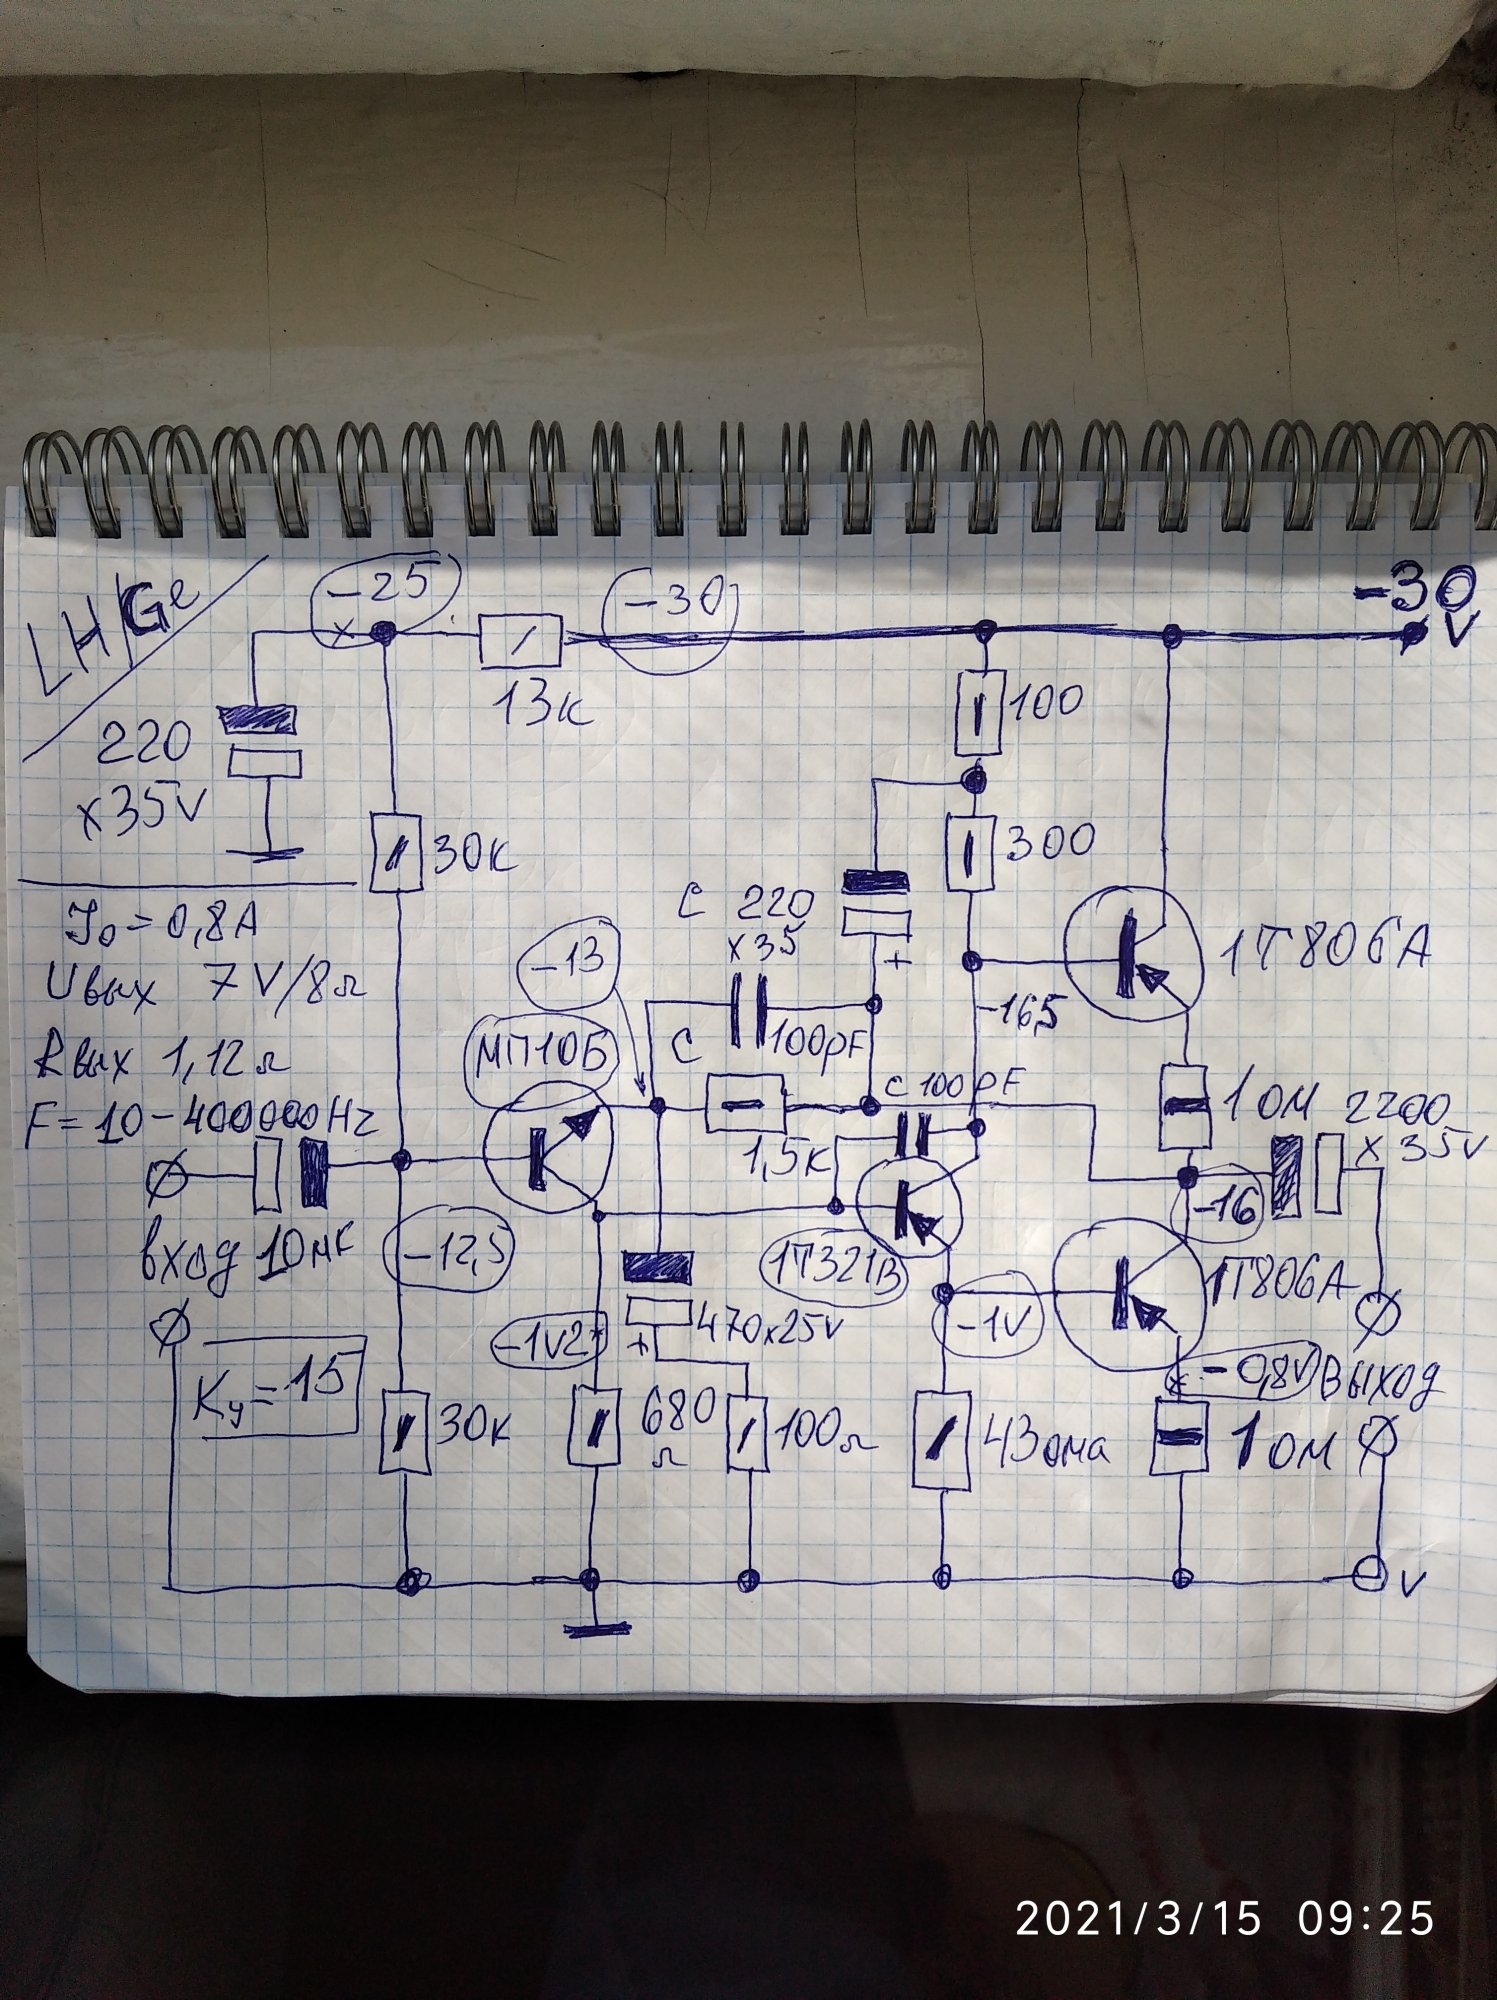 LH/Ge
-25
-30
-30
V
13к
100
220
x35V
30к
300
C 220
x35
+
Jo = 0,8A
Uвых 7V/8Ω
Rвых 1,12Ω
F=10-400000Hz
-13
МП10Б
C
100pF
-16,5
1Т806А
C 100pF
1,5к
1 ом
2200
x 35V
вход 10мF
-12,5
1Т321В
-16
1Т806А
-1V2
+
470x25V
-1V
x -0,8V
Выход
Kу=15
30к
680
Ω
100Ω
43 ома
1 ом
V
2021/3/15 09:25